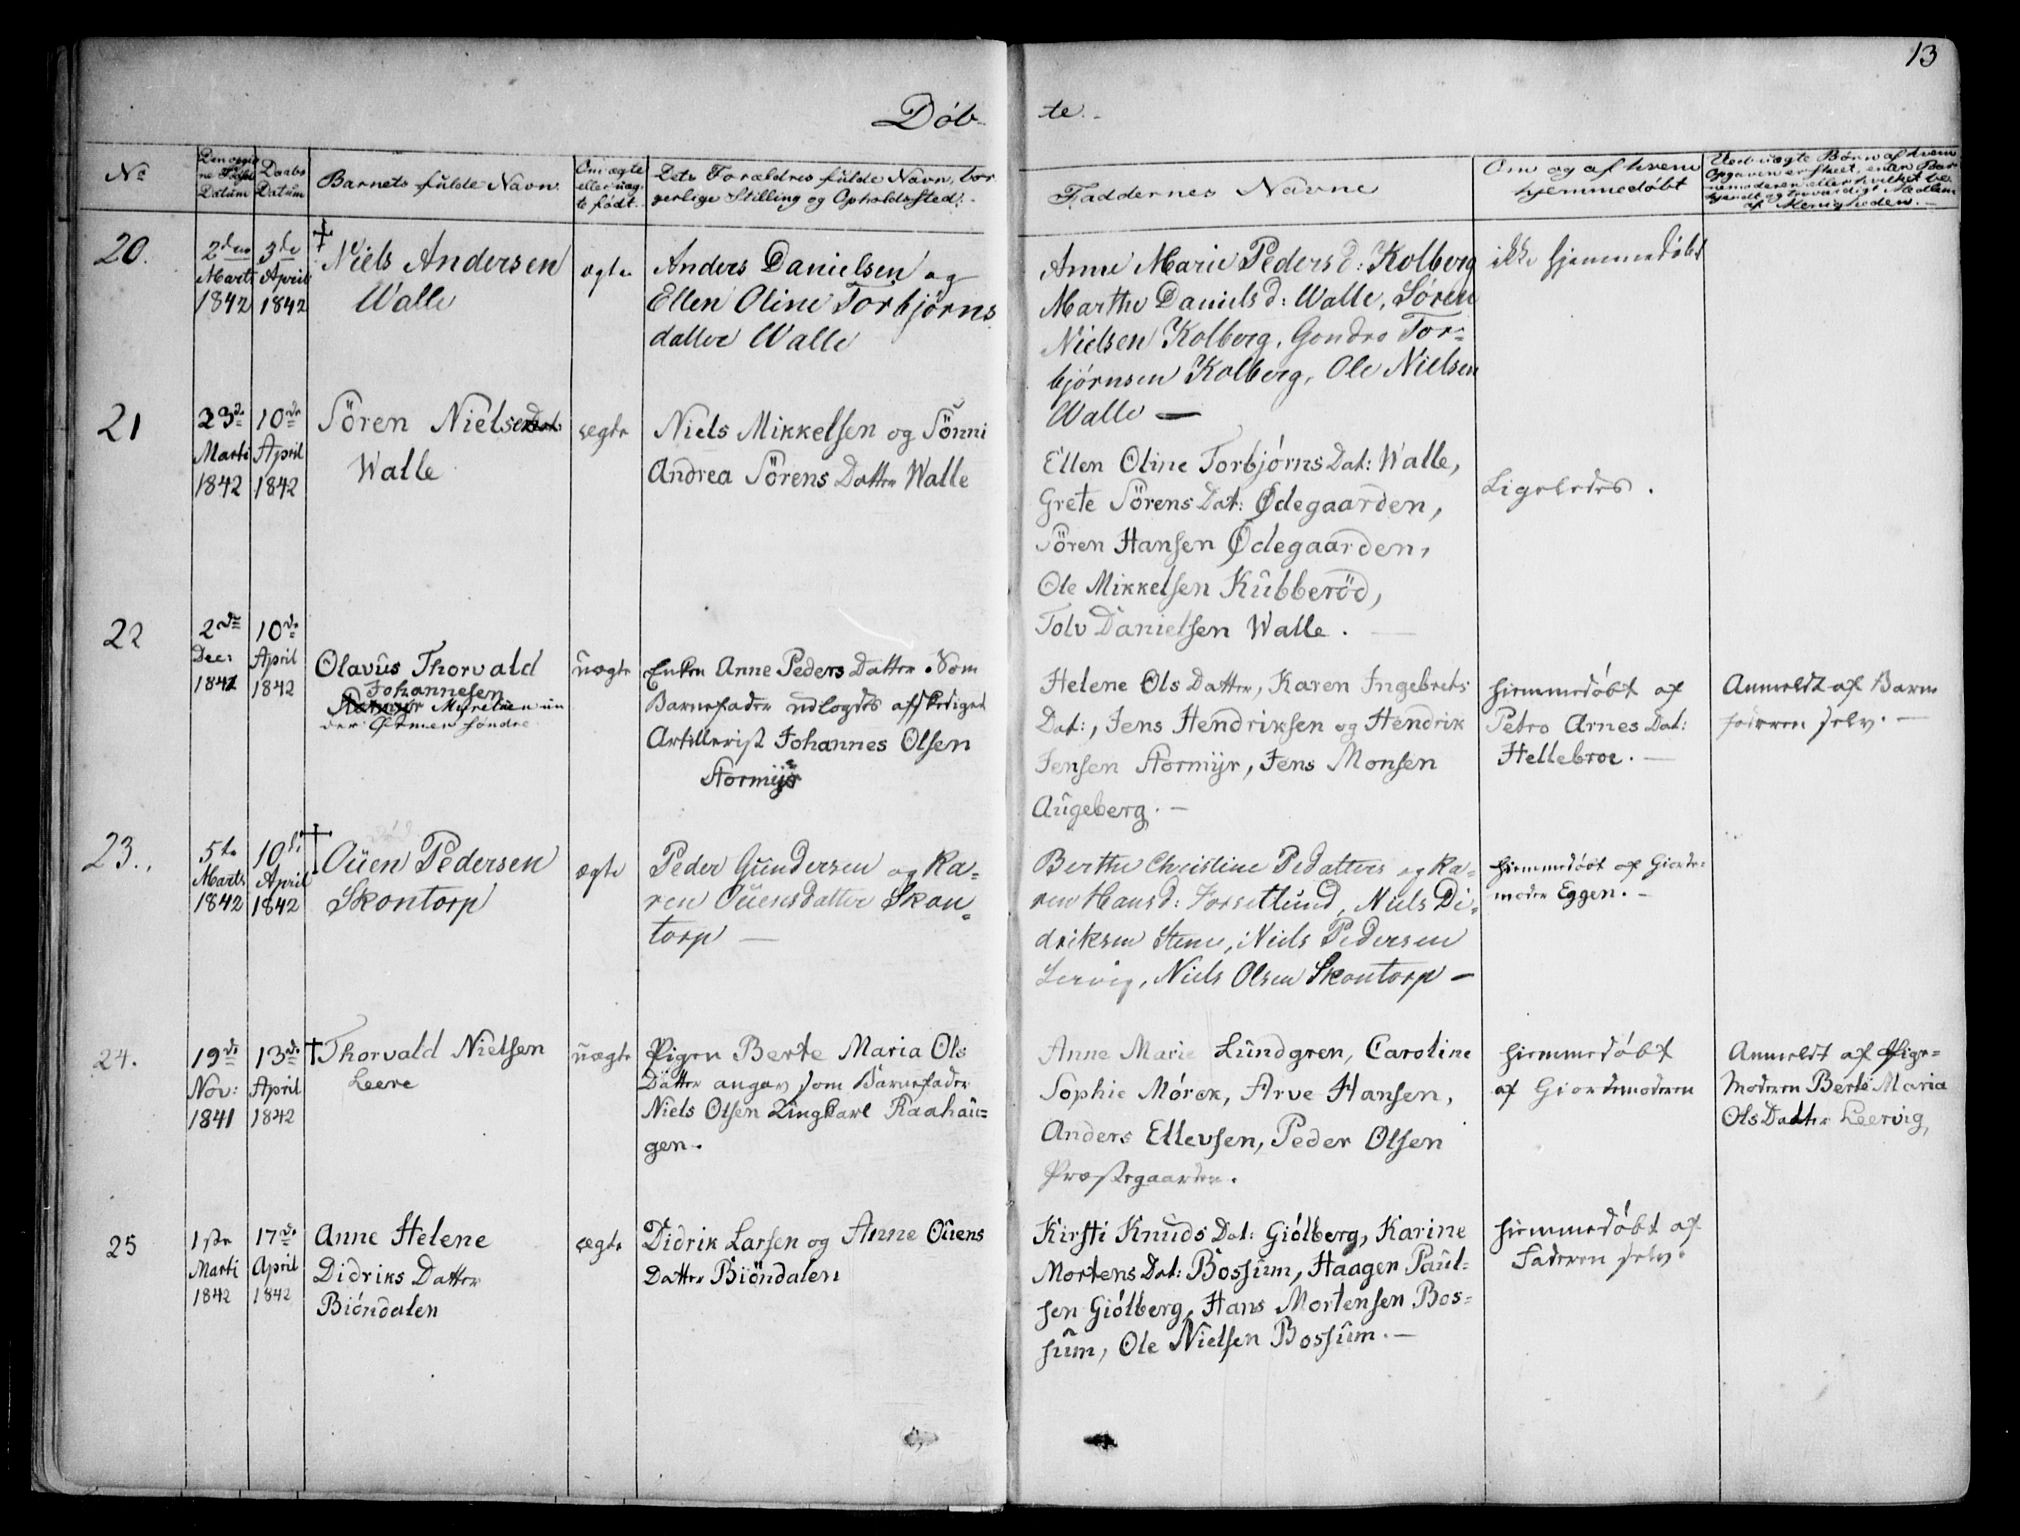 13
Döb-
te.-
No
Den opgivne Fødsels Datum
Daabs Datum
Barnets fulde Navn.
Om ægte eller uægte født.
Dets Forældres fulde Navn, borgerlige Stilling og Opholdssted.
Faddernes Navne
Om og af hvem hjemmedøbt
Ved uægte Børn af hvem Opgaven er skeet, enten Barnemoderen eller hvilket bekjendt og troværdigt Medlem af Menigheden.
20.
2den
Marts
1842
3de
April
1842
† Niels Andersen
Walle
ægte
Anders Danielsen og
Ellen Oline Torbjørns
datter Walle
Anne Marie Pedersd: Kolberg
Marthe Daniels d: Walle, Søren
Nielsen Kolberg, Gondro Tor-
bjørnsen Kolberg, Ole Nielsen
Walle —
ikke hjemmedøbt
21
23de
Marti
1842
10de
April
1842
Sören Nielsen
Walle
ægte
Niels Mikkelsen og Sönni
Andrea Sörens Datter Walle
Ellen Oline Torbjörns Dat: Walle,
Grete Sörens Dat: Ødegaarden,
Sören Hansen Ødegaarden,
Ole Mikkelsen Kubberöd,
Tolv Danielsen Walle.
Ligeledes.
22
2de
Dec:
1841
10de
April
1842
Olavus Thorvald
Johannesen
Myrestuen un
der Østmer søndre
uægte
Enken Anne Peders Datter. Som
Barnefader udlagdes afskediget
Artillerist Johannes Olsen
Stormyr
Helene Ols Datter, Karen Ingebrets
Dat:, Jens Hendriksen og Hendrik
Jensen Stormyr, Jens Monsen
Augeberg. —
hiemmedöbt af
Petro Arnes Dat:
Hellebroe. —
Anmeldt af Barne
faderen selv. —
23.
5te
Marts
1842
10de
April
1842
† Ouen Pedersen
Skontorp
ægte
Peder Gundersen og Ka-
ren Ouensdatter Skon-
torp —
Berthe Christine Pedatters og Ka-
ren Hansd: Forsetlund, Niels Di-
driksen Stene, Niels Pedersen
Lervig, Niels Olsen Skontorp —
hiemmedöbt af Giorde-
moder Eggen. —
24.
19de
Nov:
1841
13de
April
1842
† Thorvald Nielsen
Leere
uægte
Pigen Berte Maria Ols
Datter angav som Barnefader
Niels Olsen Ungkarl Raahau-
gen.
Anne Marie Lundgren, Caroline
Sophie Mörck, Arve Hansen,
Anders Ellevsen, Peder Olsen
Præstegaarden.
hiemmedöbt
af Giordemoderen
Anmeldt af Pige-
moderen Berte Maria
Ols Datter Leervig,
25
1ste
Marti
1842
17de
April
1842
Anne Helene
Didriks Datter
Biöndalen
ægte
Didrik Larsen og Anne Ouens
Datter Biöndalen
Kirsti Knuds Dat: Giölberg, Karine
Mortens Dat: Bossum, Haagen Paul-
sen Giölberg, Hans Mortensen Bos-
sum, Ole Nielsen Bossum. —
hiemmedöbt af
Faderen selv.